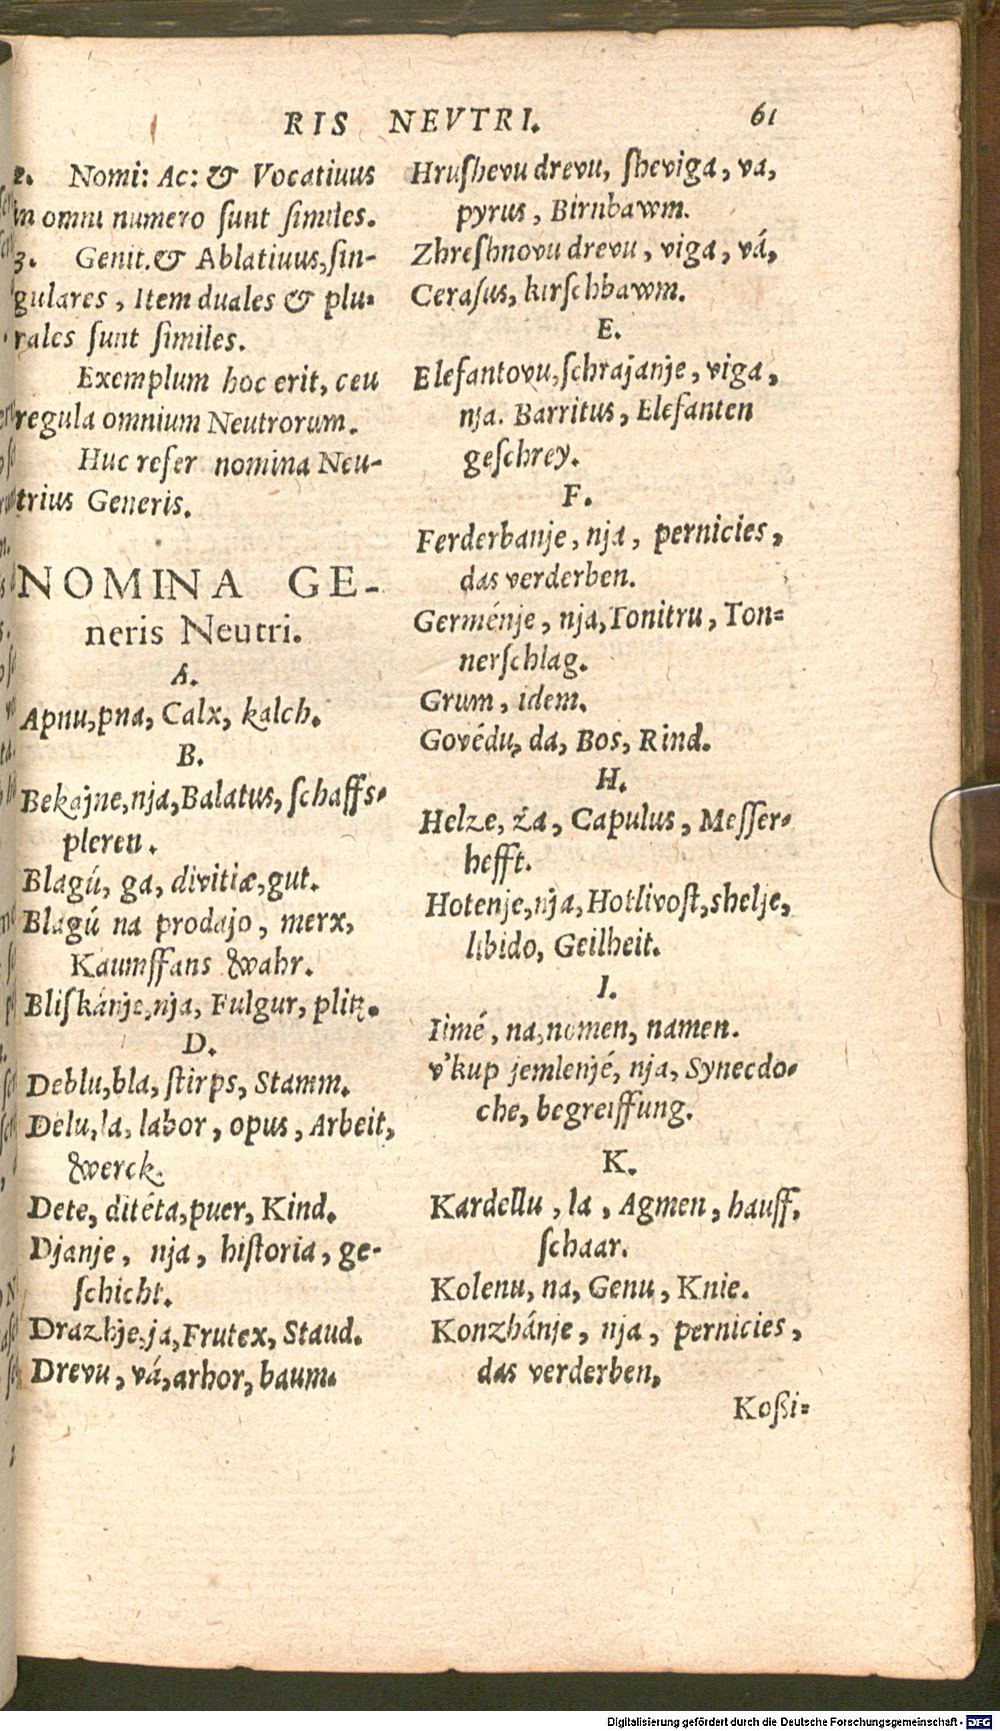 RIS NEVTRI. 61
2. Nomi: Ac: & Vocatiuus
in omni numero ſunt ſimiles.
3. Genit. & Ablatiuus, ſin-
gulares, Item duales & plu-
rales ſunt ſimiles.
Exemplum hoc erit, ceu
regula omnium Neutrorum.
Huc refer nomina Neu-
trius Generis.
NOMINA GE-
neris Neutri.
A.
Apnu, pna, Calx, kalch.
B.
Bekajne, nja, Balatus, ſchaffs-
pleren.
Blagú, ga, divitiæ, gut.
Blagú na prodajo, merx,
Kaumſſans wahr.
Bliſkánje, nja, Fulgur, plitz.
D.
Deblu, bla, ſtirps, Stamm.
Delu, la, labor, opus, Arbeit,
werck.
Dete, ditéta, puer, Kind.
Djanje, nja, hiſtoria, ge-
ſchicht.
Drazhje, ja, Frutex, Staud.
Drevu, vá, arbor, baum.
Hruſhevu drevu, ſheviga, va,
pyrus, Birnbawm.
Zhreſhnovu drevu, viga, vá,
Ceraſus, kirſchbawm.
E.
Elefantovu, ſchrajanje, viga,
nja. Barritus, Elefanten
geſchrey.
F.
Ferderbanje, nja, pernicies,
das verderben.
Germénje, nja, Tonitru, Ton-
nerſchlag.
Grum, idem.
Govédu, da, Bos, Rind.
H.
Helze, źa, Capulus, Meſſer-
hefft.
Hotenje, nja, Hotlivoſt, shelje,
libido, Geilheit.
I.
Iimé, na, nomen, namen.
v'kup jemlenjé, nja, Synecdo-
che, begreiffung.
K.
Kardellu, la, Agmen, hauff,
ſchaar.
Kolenu, na, Genu, Knie.
Konzhánje, nja, pernicies,
das verderben,
Koßi-
Digitalisierung gefördert durch die Deutsche Forschungsgemeinschaft - DFG